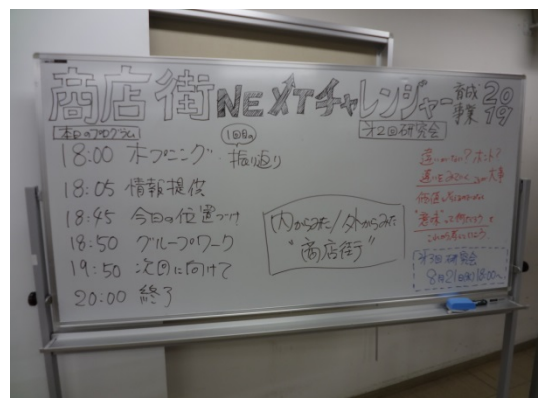 商店街NEXTチャレンジャー育成事業2019
本日のプログラム
第2回研究会
1回目の
18:00 オープニング・振り返り
18:05 情報提供
18:45 今日の位置づけ
18:50 グループワーク
19:50 次回に向けて
20:00 終了
内からみた/外からみた
"商店街"
ホント?
大事
"意味"って何だろう
第3回研究会
8月21日(水)18:00~